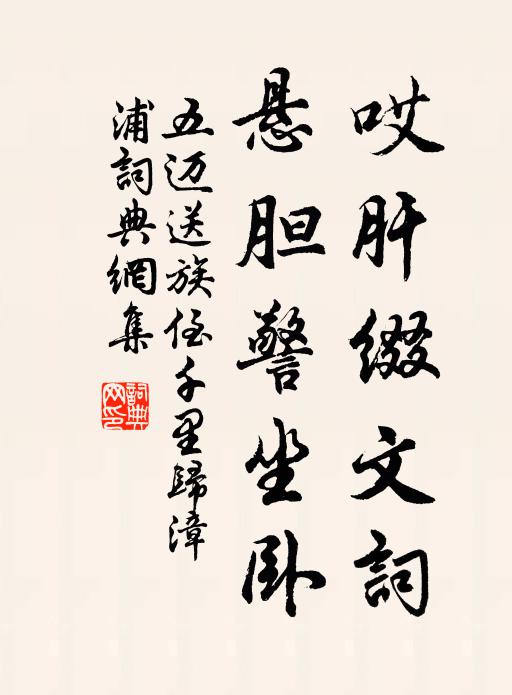 哎肝缀文詞
悬胆警坐卧
五迈送族侄千里歸漳
浦詞典網集
詞典
网印